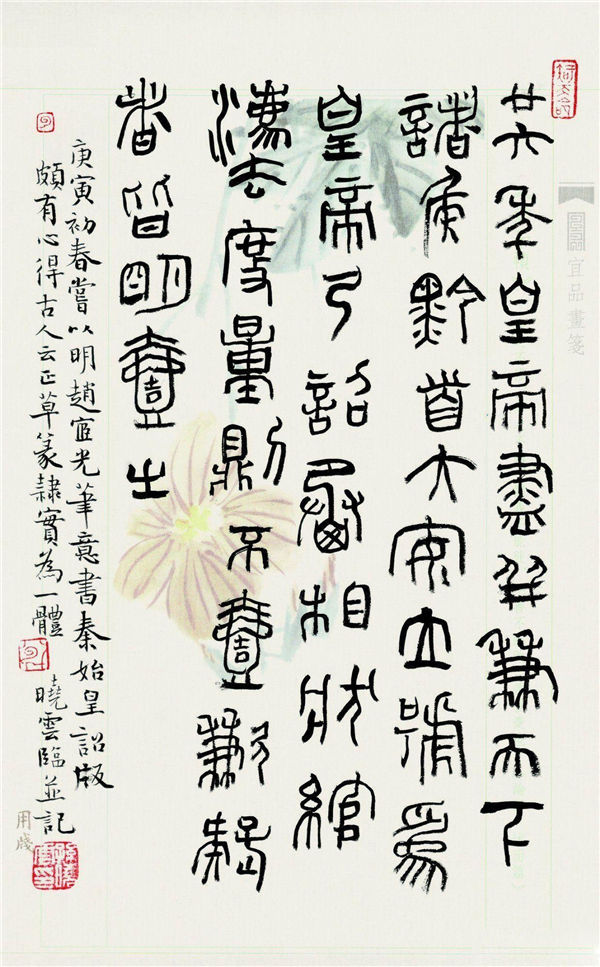 廿六年皇帝盡并兼天下
諸侯黔首大安立號為
皇帝乃詔丞相狀綰
灋法度量則不壹歉疑
者皆明壹之
庚寅初春嘗以明趙宧光筆意書秦始皇詔版
頗有心得古人云正草篆隸實為一體 曉雲臨並記
宜品畫箋
用箋